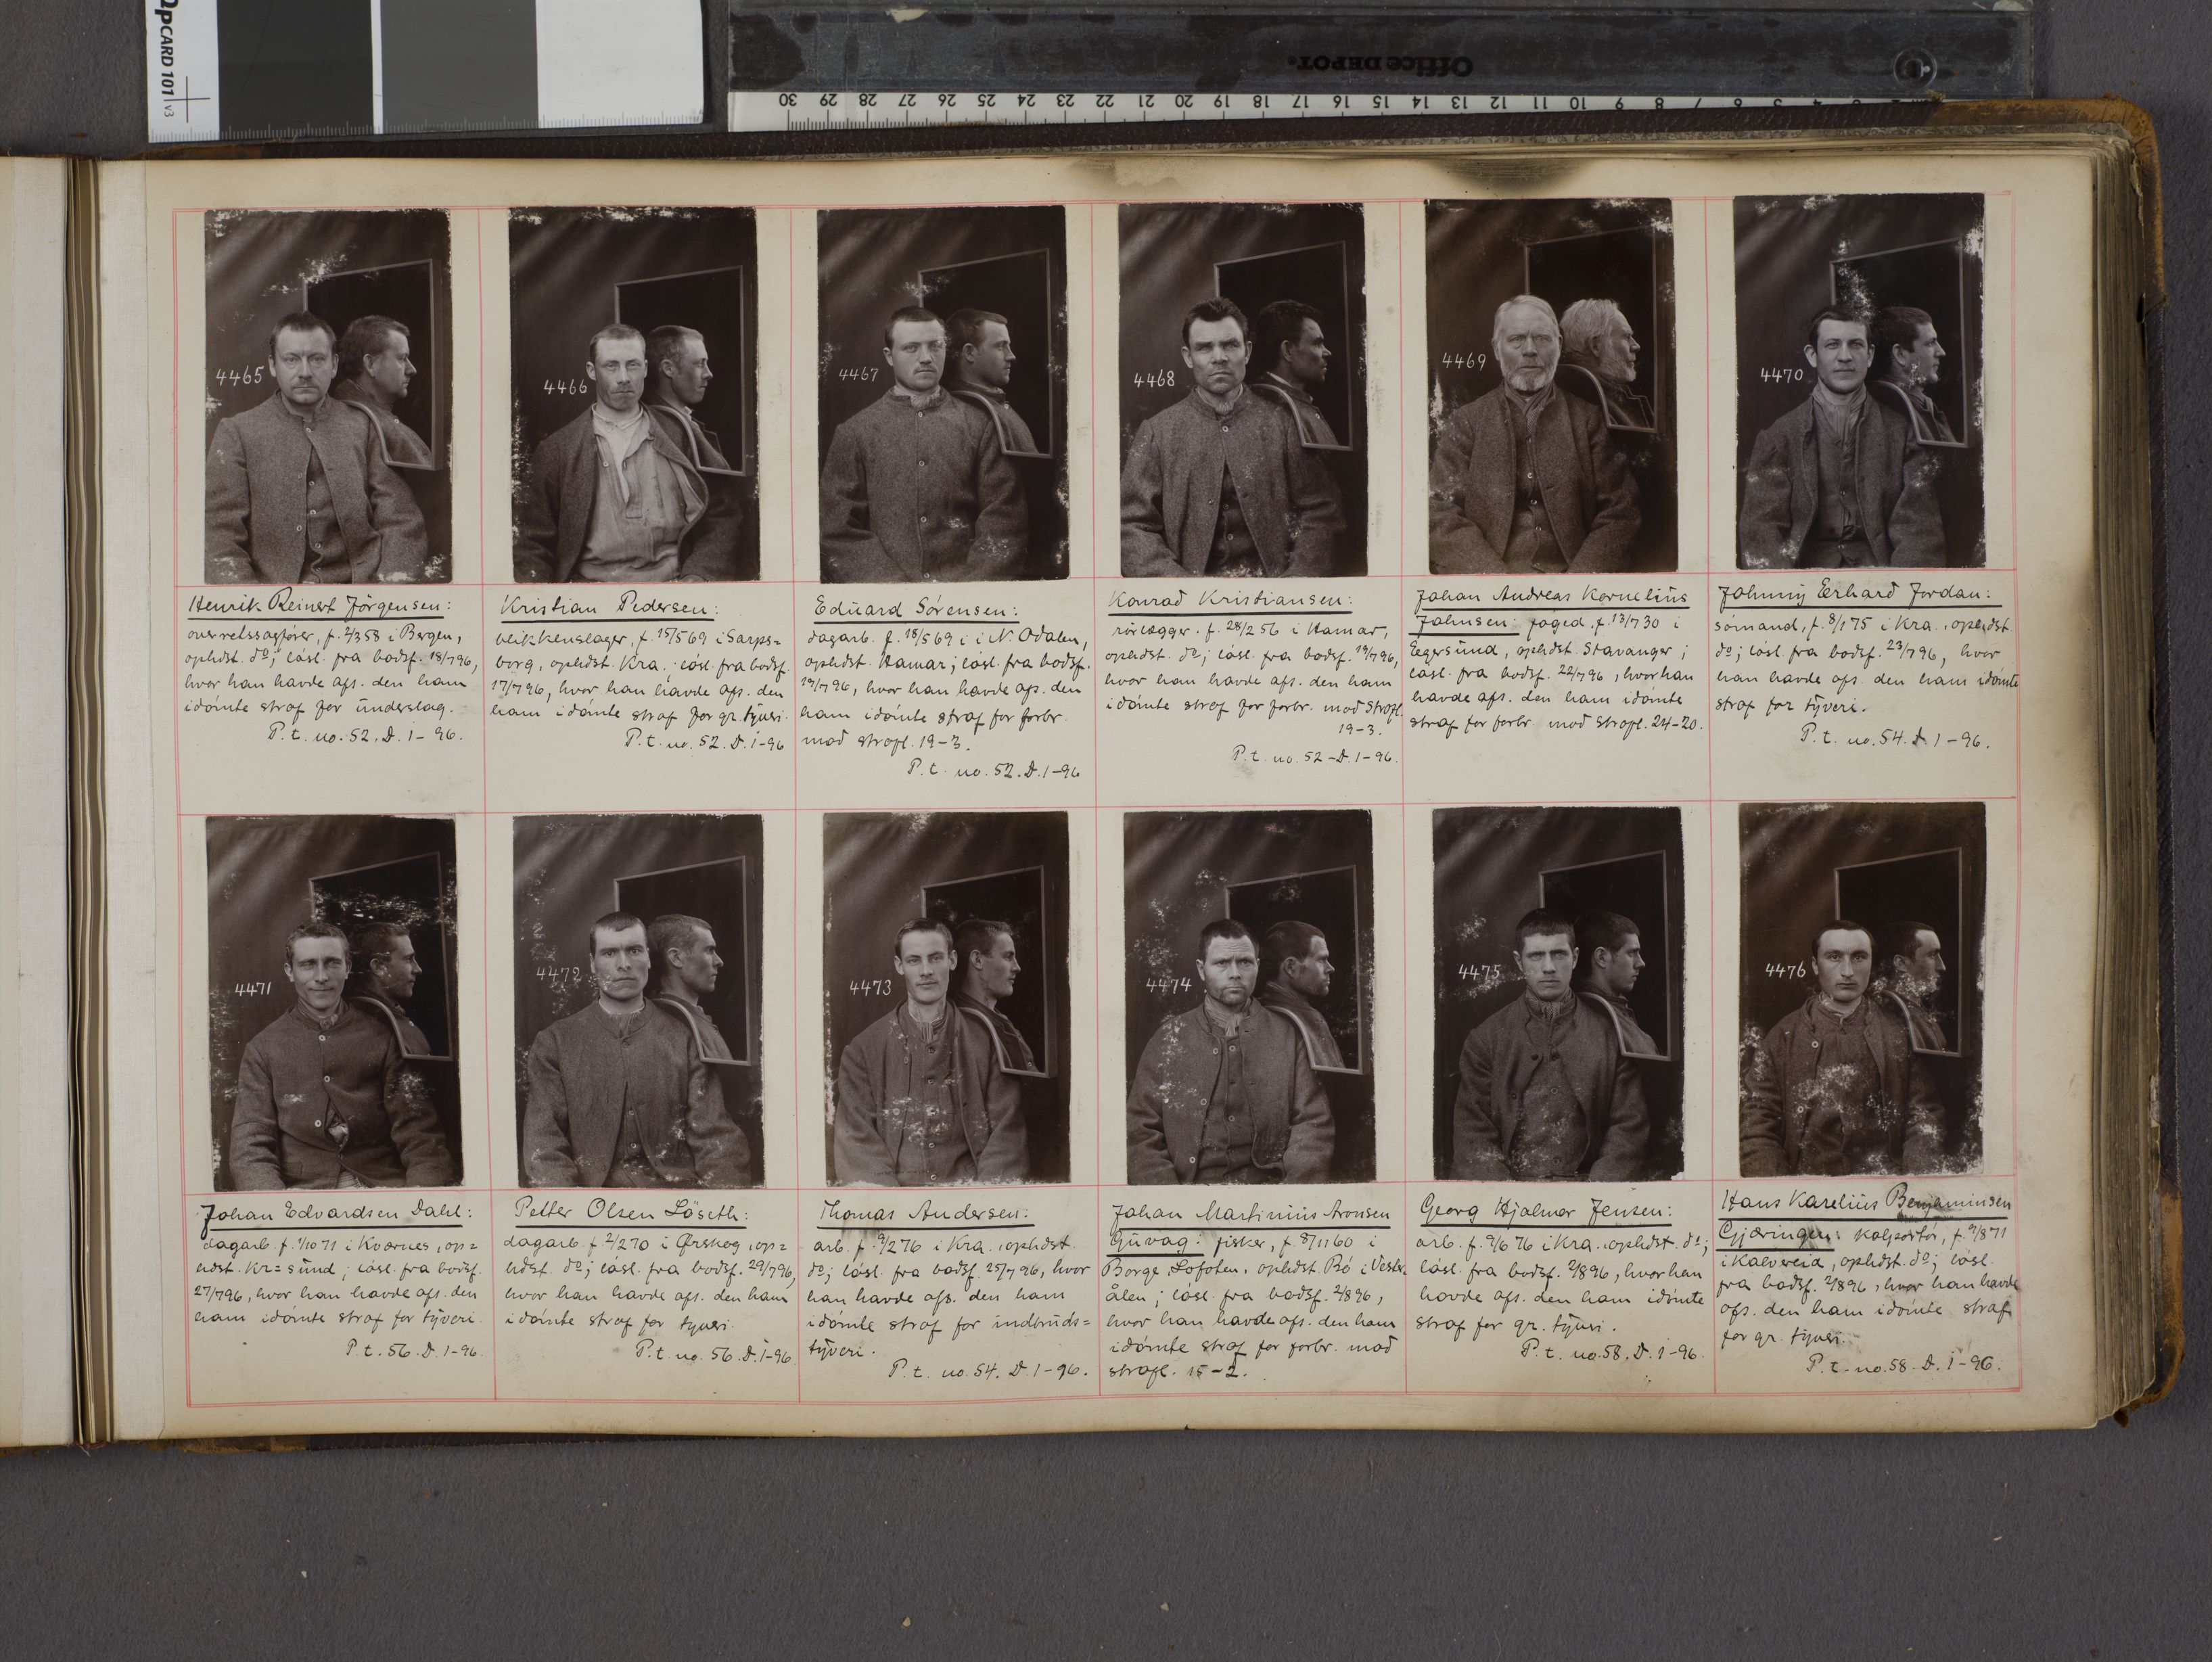 QPCARD 101 v3
Office DEPOT
30 29 28 27 26 25 24 23 22 21 20 19 18 17 16 15 14 13 12 11 10 9 8 7 6 5 4 3 2
4465
Henrik Reinert Jörgensen:
overretssagfører, f. 2/3 58 i Bergen,
ophdst. do; løsl. fra bodsf. 18/7 96,
hvor han havde afs. den ham
idømte straf for underslag.
P. t. no. 52. D. 1 - 96.
4466
Kristian Pedersen:
blikkenslager, f. 15/5 69 i Sarps=
borg, ophdst. Kra.; løsl. fra bodsf.
17/7 96, hvor han havde afs. den
ham idømte straf for gr. tyveri.
P. t. no. 52. D. 1-96
4467
Eduard Sörensen:
dagarb. f. 18/5 69 i i N. Odalen,
ophdst. Hamar; løsl. fra bodsf.
19/7 96, hvor han havde afs. den
ham idømte straf for forbr.
mod strafl. 19-3.
P. t. no. 52. D. 1-96
4468
Konrad Kristiansen:
rörlægger. f. 28/2 56 i Hamar,
ophdst. do; løsl. fra bodsf. 19/7 96,
hvor han havde afs. den ham
idømte straf for forbr. mod strafl.
19-3.
P. t. no. 52 - D. 1-96.
4469
Johan Andreas Kornelius
Jahnsen: foged, f. 13/7 30 i
Egersund, ophdst. Stavanger;
løsl. fra bodsf. 22/7 96, hvor han
havde afs. den ham idømte
straf for forbr. mod strafl. 24-20.
4470
Johnny Erhard Jordan:
sömand, f. 8/1 75 i Kra., ophdst.
do; løsl. fra bodsf. 23/7 96, hvor
han havde afs. den ham idømte
straf for tyveri.
P. t. no. 54. D. 1-96.
4471
Johan Edvardsen Dahl:
dagarb. f. 1/10 71 i Kværnes, op=
hdst. Kr=sund; løsl. fra bodsf.
27/7 96, hvor han havde afs. den
ham idømte straf for tyveri.
P. t. 56. D. 1-96.
4472
Petter Olsen Löseth:
dagarb. f. 2/2 70 i Ørskog, op=
hdst. do; løsl. fra bodsf. 29/7 96,
hvor han havde afs. den ham
idømte straf for tyveri.
P. t. no. 56. D. 1-96.
4473
Thomas Andersen:
arb. f. 9/2 76 i Kra., ophdst.
do; løsl. fra bodsf. 25/7 96, hvor
han havde afs. den ham
idømte straf for indbruds=
tyveri.
P. t. no. 54. D. 1-96.
4474
Johan Martinius Aronsen
Guvag: fisker, f. 8/11 60 i
Borge, Lofoten, ophdst. Bö i Vester=
ålen; løsl. fra bodsf. 2/8 96,
hvor han havde afs. den ham
idømte straf for forbr. mod
strafl. 15-2.
4475
Georg Hjalmar Jensen:
arb. f. 9/6 76 i Kra., ophdst. do;
løsl. fra bodsf. 2/8 96, hvor han
havde afs. den ham idømte
straf for gr. tyveri.
P. t. no. 58. D. 1-96.
4476
Hans Karelius Benjaminsen
Gjæringen: kolportör, f. 9/8 71
i Kalvereid, ophdst. do; løsl.
fra bodsf. 2/8 96, hvor han havde
afs. den ham idømte straf
for gr. tyveri.
P. t. no. 58. D. 1-96.